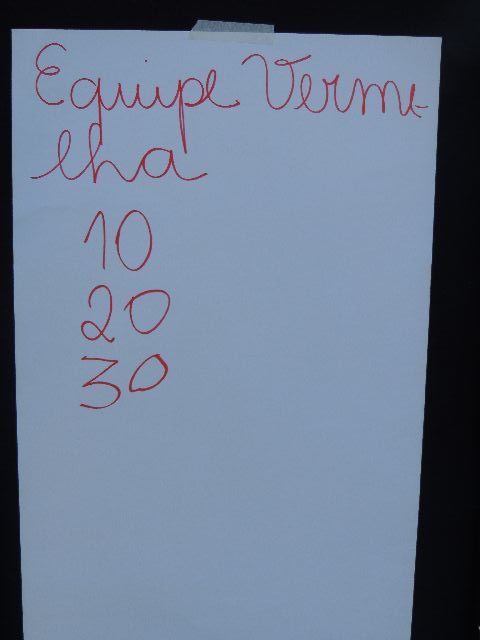 Equipe Verme-
lha
10
20
30